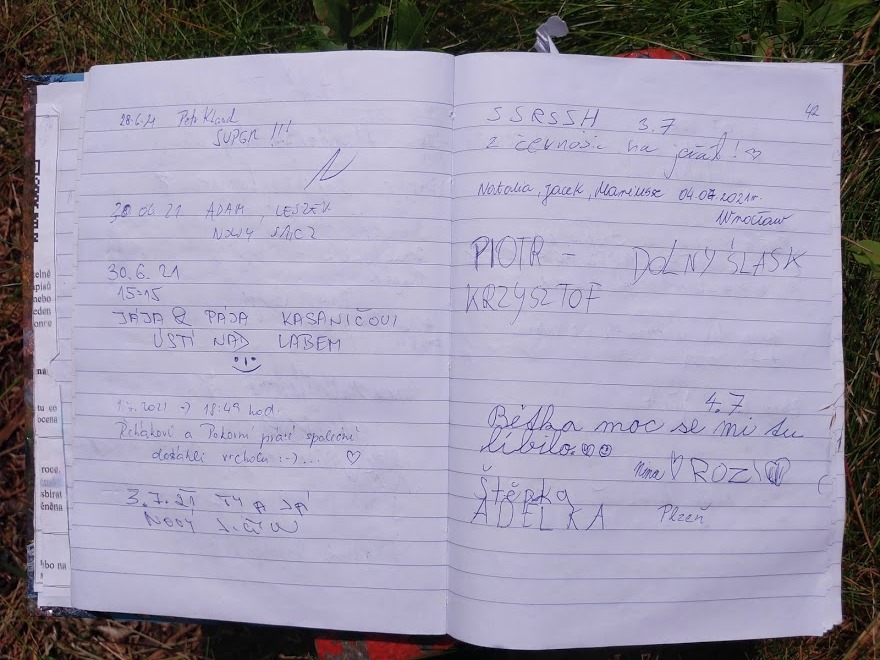 28.6.21 Petr
SUPER !!!
30 06 21 ADAM, LESZEK
NOWY SĄCZ
30.6.21
15:15
JÁJA & PÁJA KASANIČOVI
ÚSTÍ NAD LABEM
1.7.2021 → 18:49 hod.
Řehákovi a Pokorní právě společně
dosáhli vrcholu :-)... ♡
3.7.21 TY A JÁ
NOVÝ JIČÍN
42
SSRSSH 3.7
z Černošic na
Natalia, Jacek, Mariusz 04.07.2021r.
Wrocław
PIOTR – DOLNY ŚLĄSK
KRZYSZTOF
4.7
Bětka moc se mi tu
líbilo.
Nina ♡ ROZI ♡
Štěpka
ADÉLKA Plzeň
telně
ápisů
nebo
eden
once
na
tu en
ocená
roce.
sbírat
ěněna
bo na